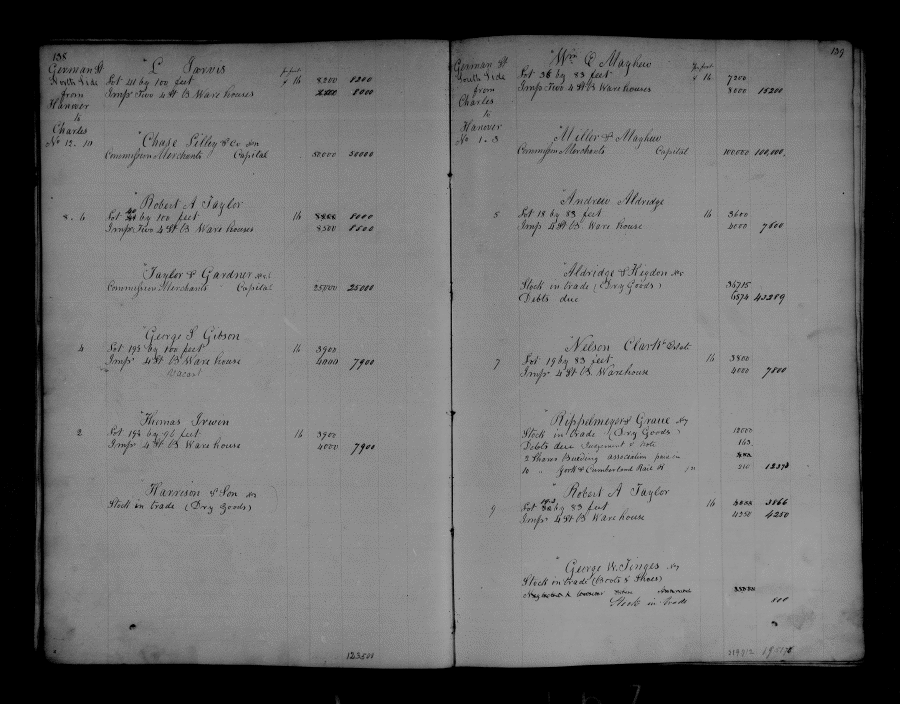 138
German St
North Side
from
Hanover
to
Charles
No 12. 10
" L Jarvis
Lot 41 by 100 feet 16 8200 8200
Imps Two 4 St B Ware houses 8000
"Chase Lilley & Co
Commission Merchants Capital 50000 50000
"Robert A Taylor
8 - 6 Lot 40 by 100 feet 16 8000
Imps Two 4 St B Ware houses 8500 8500
"Taylor & Gardner
Commission Merchants Capital 25000 25000
"George S Gibson
4 Lot 19½ by 100 feet 16 3900
Imps 4 St B Ware house 4000 7900
Vacant
"Thomas Irwin
2 Lot 19½ by 96 feet 16 3900
Imps 4 St B Ware house 4000 7900
"Harrison & Son
Stock in trade (Dry Goods)
123500
139
German St
South Side
from
Charles
to
Hanover
No 1 - 3
"Wm E Mayhew
Lot 36 by 83 feet 16 7200
Imps Two 4 St B Ware houses 8000 15200
"Miller & Mayhew
Commission Merchants Capital 100000 100,000
"Andrew Aldridge
5 Lot 18 by 83 feet 16 3600
Imps 4 St B Ware house 4000 7600
"Aldridge & Higdon
Stock in trade (Dry Goods) 36715
Debts due 6574 43289
"Nelson Clark Estate
7 Lot 19 by 83 feet 16 3800
Imps 4 St B Warehouse 4000 7800
Stock in trade (Dry Goods) 12000
Debts due Judgement & Note 163
2 Shares Building association
10 " York & Cumberland Rail R 210 12373
"Robert A Taylor
9 Lot by 83 feet 16 3866
Imps 4 St B Warehouse 4250 4250
"George W. Tinges
Stock in trade (Boots & Shoes)
Stock in trade 800
219712